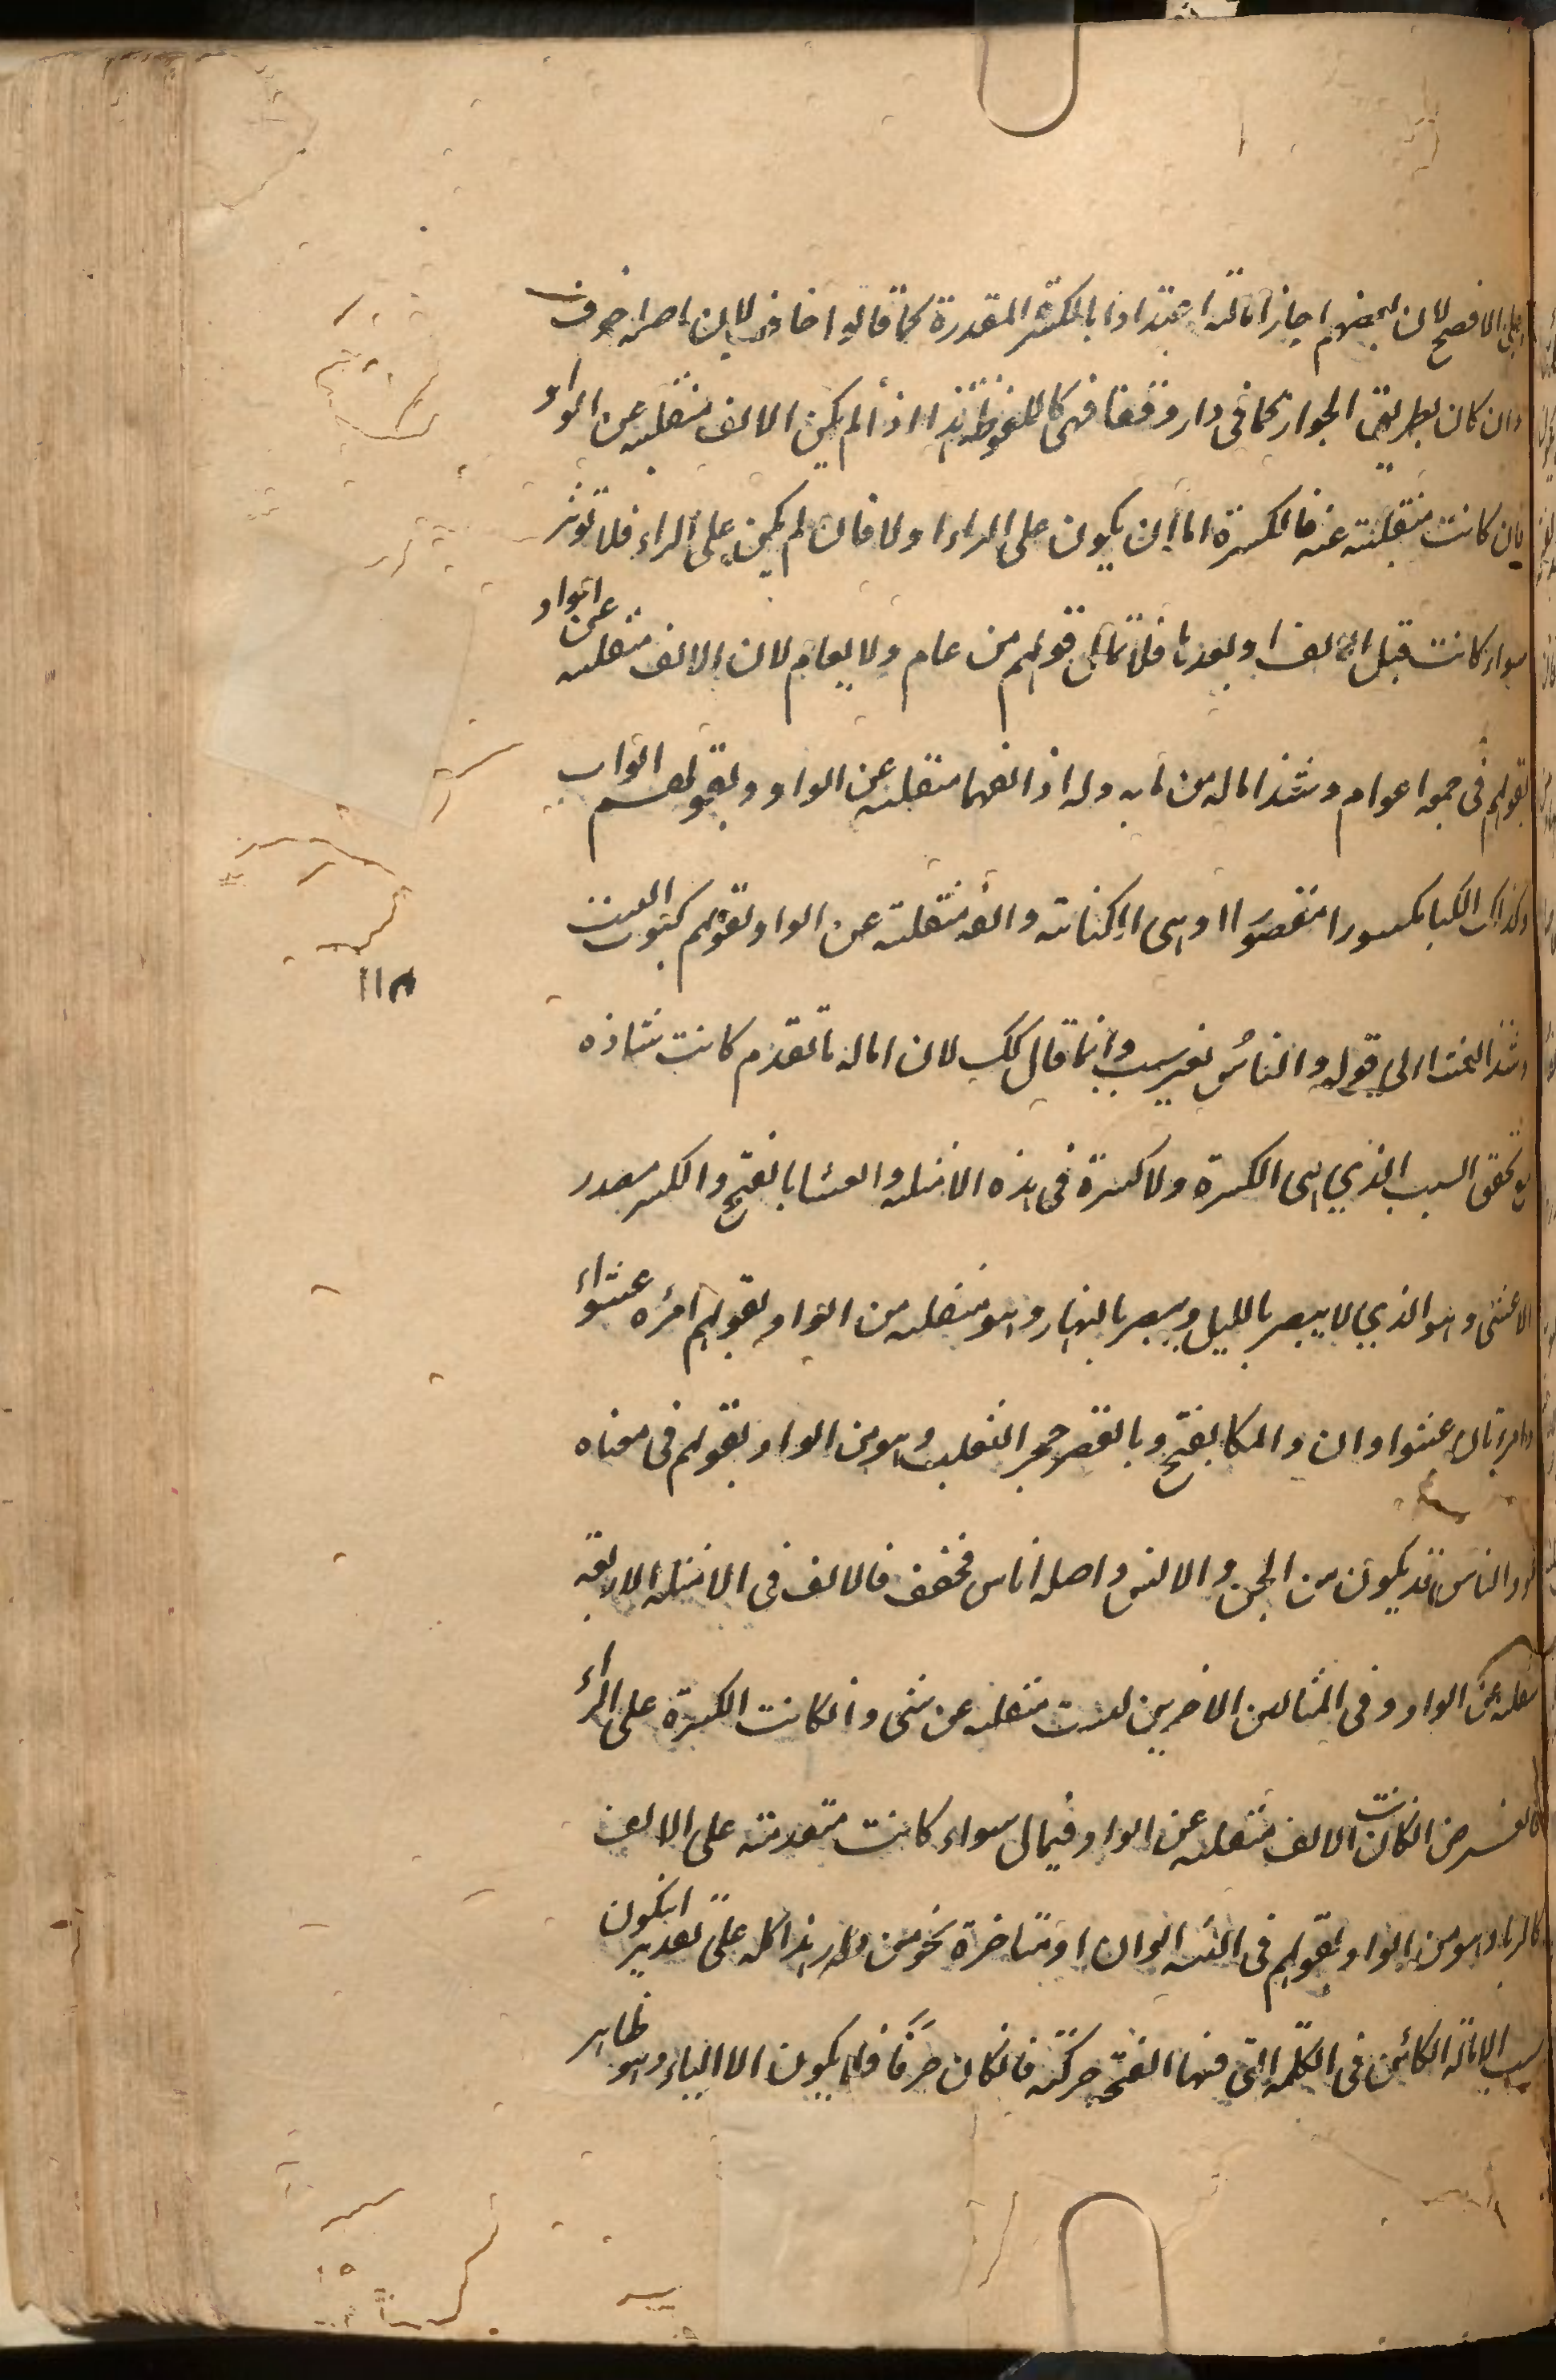 على الافصح لان بعضهم اجاز امالته اعتدادا بالكسرة المقدرة كما قالوا خاف لان اصله خوف
وان كان بطريق الجواز كما فى دار وقفا فهى كالملفوظة هذا اذا لم يكن الالف منقلبه عن الواو
فان كانت منقلبة عنه فالكسرة اما ان يكون على الراء او لا فان لم يكن على الراء فلا تؤثر
سواء كانت قبل الالف او بعدها فلا تمال قولهم من عام ولا بعام لان الالف منقلبه عن الواو
لقولهم فى جمعه اعوام وشذ اماله من بابه وله اذ الفهما منقلبه عن الواو ولقولهم ابواب
وكذلك الكبا مكسورا مقصورا وهى الكناسة والفه منقلبة عن الواو لقولهم كبوت البيت
وشذ الخ الى قوله والناس بغير سبب وانما قال كك لان اماله ما تقدم كانت شاذه
مع تحقق السبب الذي هى الكسرة ولا كسرة فى هذه الامثله والعشا بالفتح والكسر مصدر
الاعشى وهو الذي لا يبصر بالليل ويبصر بالنهار وهو منقلبه من الواو لقولهم امرءه عشواء
وامرءتان عشواوان والمكا بفتح وبالقصر جحر الثعلب وهو من الواو لقولهم فى معناه
والناس قد يكون من الجن والانس واصله اناس فخفف فالالف فى الامثله الاربعه
منقلبه عن الواو وفى المثالين الاخرين ليست منقلبه عن شى وانكانت الكسرة على الراء
والفرض انكانت الالف منقلبه عن الواو فيمال سواء كانت متقدمة على الالف
كالربا وهو من الواو لقولهم فى التثنيه ربوان او متاخرة نحو من دار هذا كله على تقدير انيكون
سبب الامالة الكائن فى الكلمه التى فيها الفتح حركته فانكان حرفا فلا يكون الا الياء وهو ظاهر